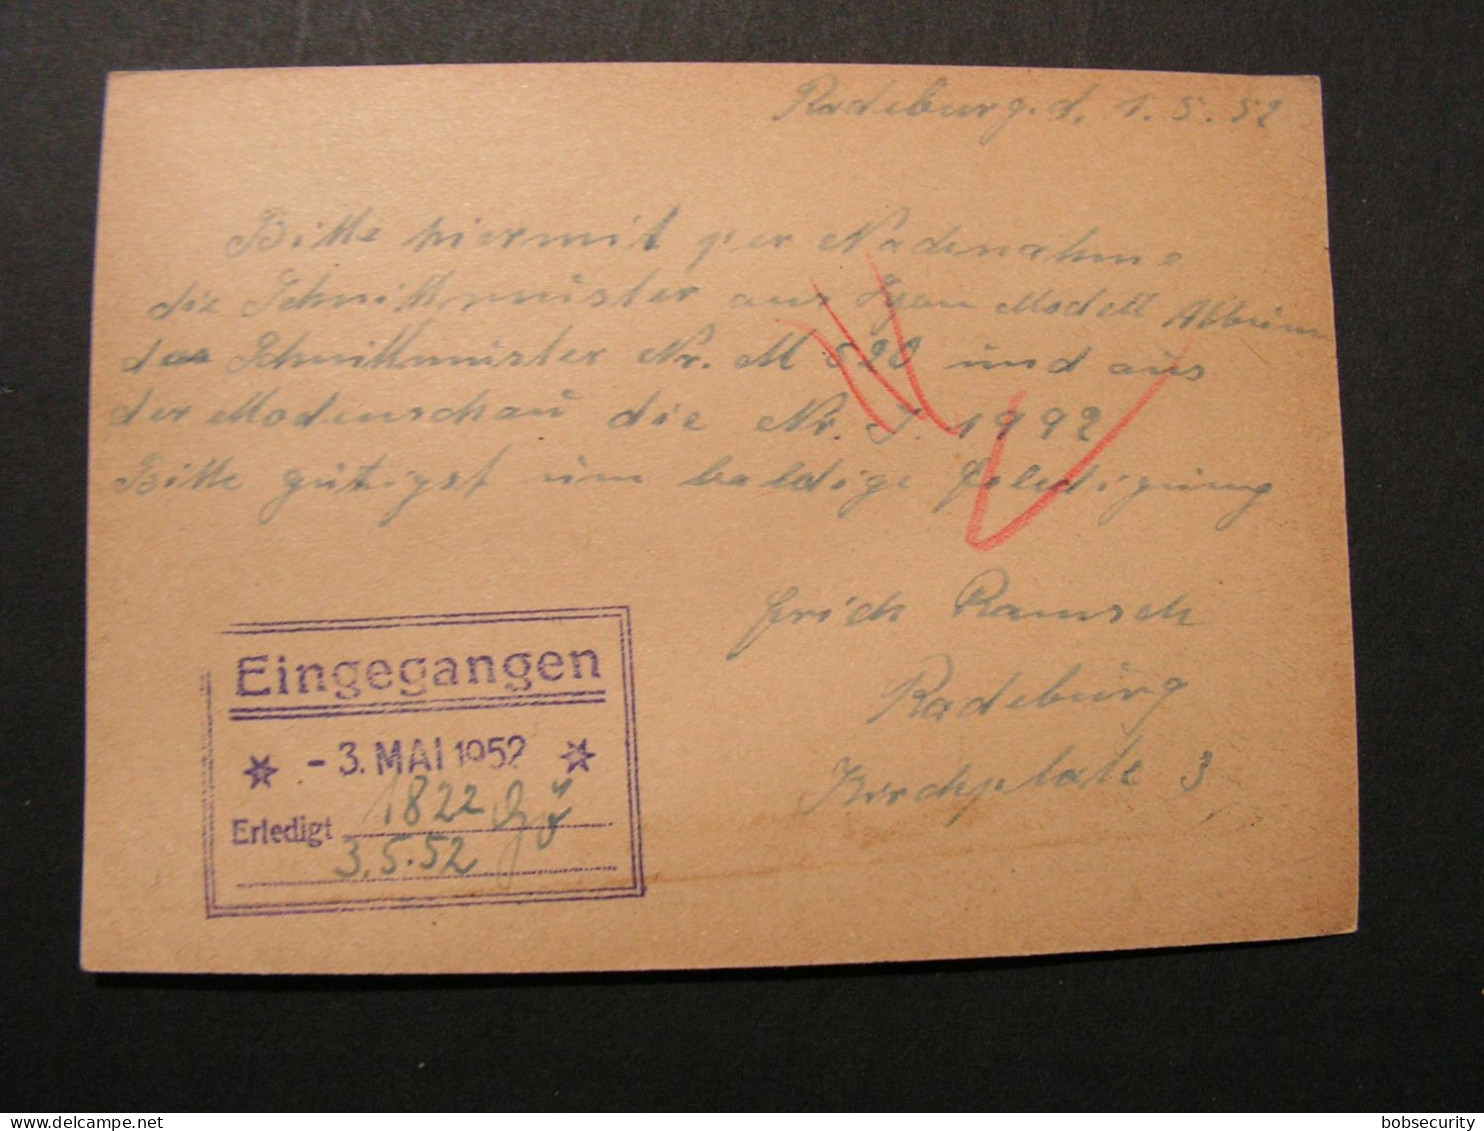 Radeburg. d. 1.5.52
Bitte hiermit per Nachnahme
die Schnittmuster aus Modell
das Schnittmuster Nr. M 520 und aus
der Modenschau die Nr. J. 1992
Bitte gütigst um baldige Erledigung
Erich Ramsch
Radeburg
Kirchplatz 3
Eingegangen
- 3. MAI 1952
Erledigt 1822
3.5.52
bobsecurity